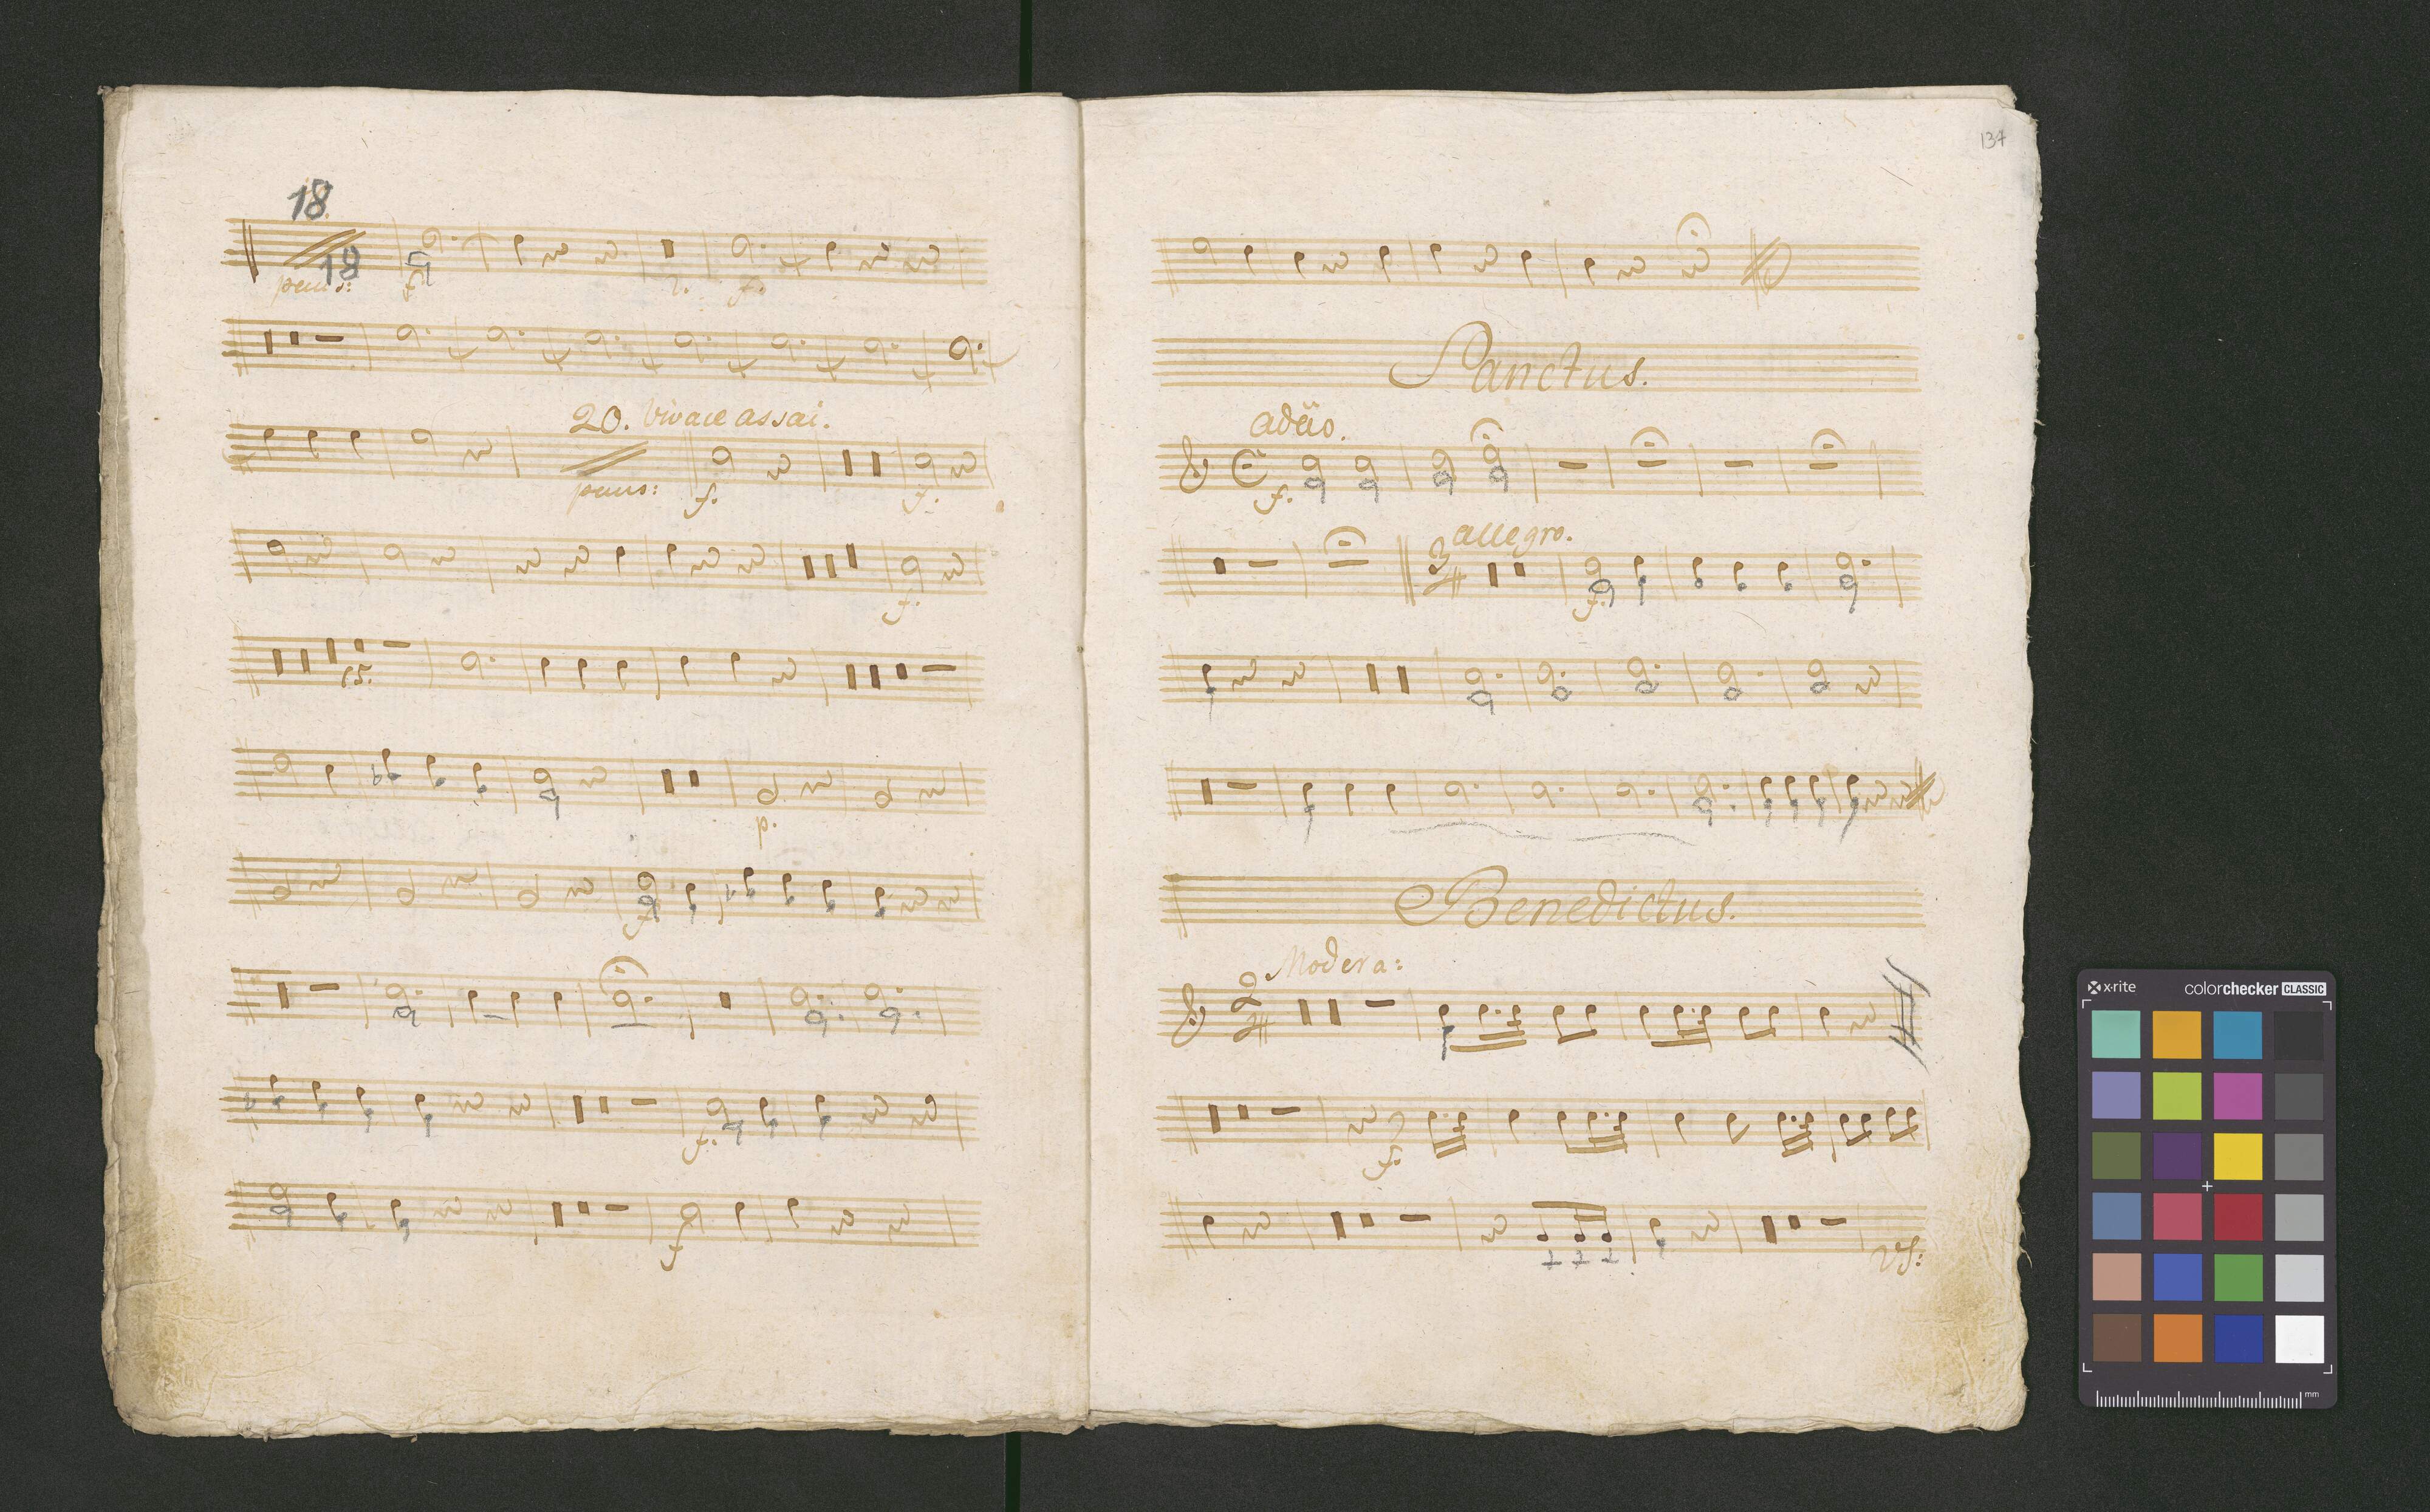 18.
18
paus:
f.
2.
f.
20. Vivace assai.
paus:
f.
f.
f.
15.
p.
f.
f.
f
137
Sanctus.
adão.
f.
allegro.
3
f.
Benedictus.
Modera:
2
f.
VS:
x-rite
colorchecker CLASSIC
mm